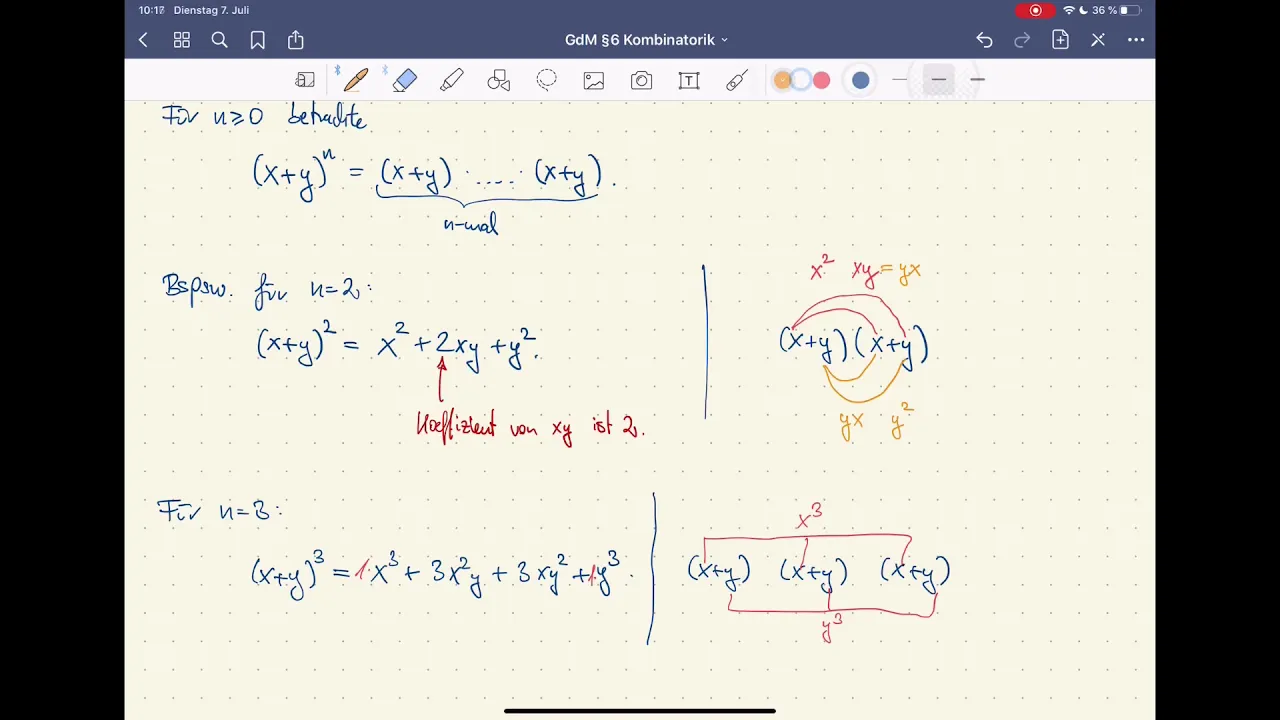 10:17 Dienstag 7. Juli
36 %
GdM §6 Kombinatorik
Für n≥0 betrachte
(x+y)ⁿ = (x+y) · .... · (x+y).
n-mal
Bspsw. für n=2:
(x+y)² = x² + 2xy + y².
Koeffizient von xy ist 2.
x² xy = yx
(x+y)(x+y)
yx y²
Für n=3:
(x+y)³ = 1·x³ + 3x²y + 3xy² + 1·y³.
x³
(x+y) (x+y) (x+y)
y³